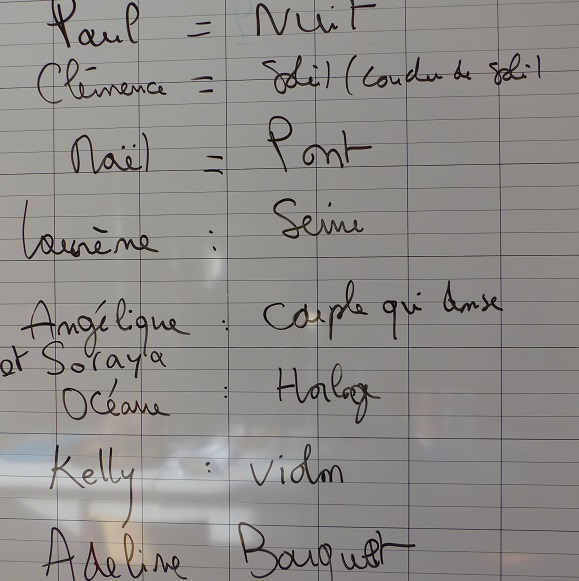 Paul = Nuit
Clémence = Soleil (coucher de soleil
Maël = Pont
Laurène : Seine
Angélique : Couple qui danse
et Soraya
Océane : Horloge
Kelly : violon
Adeline Bouquet